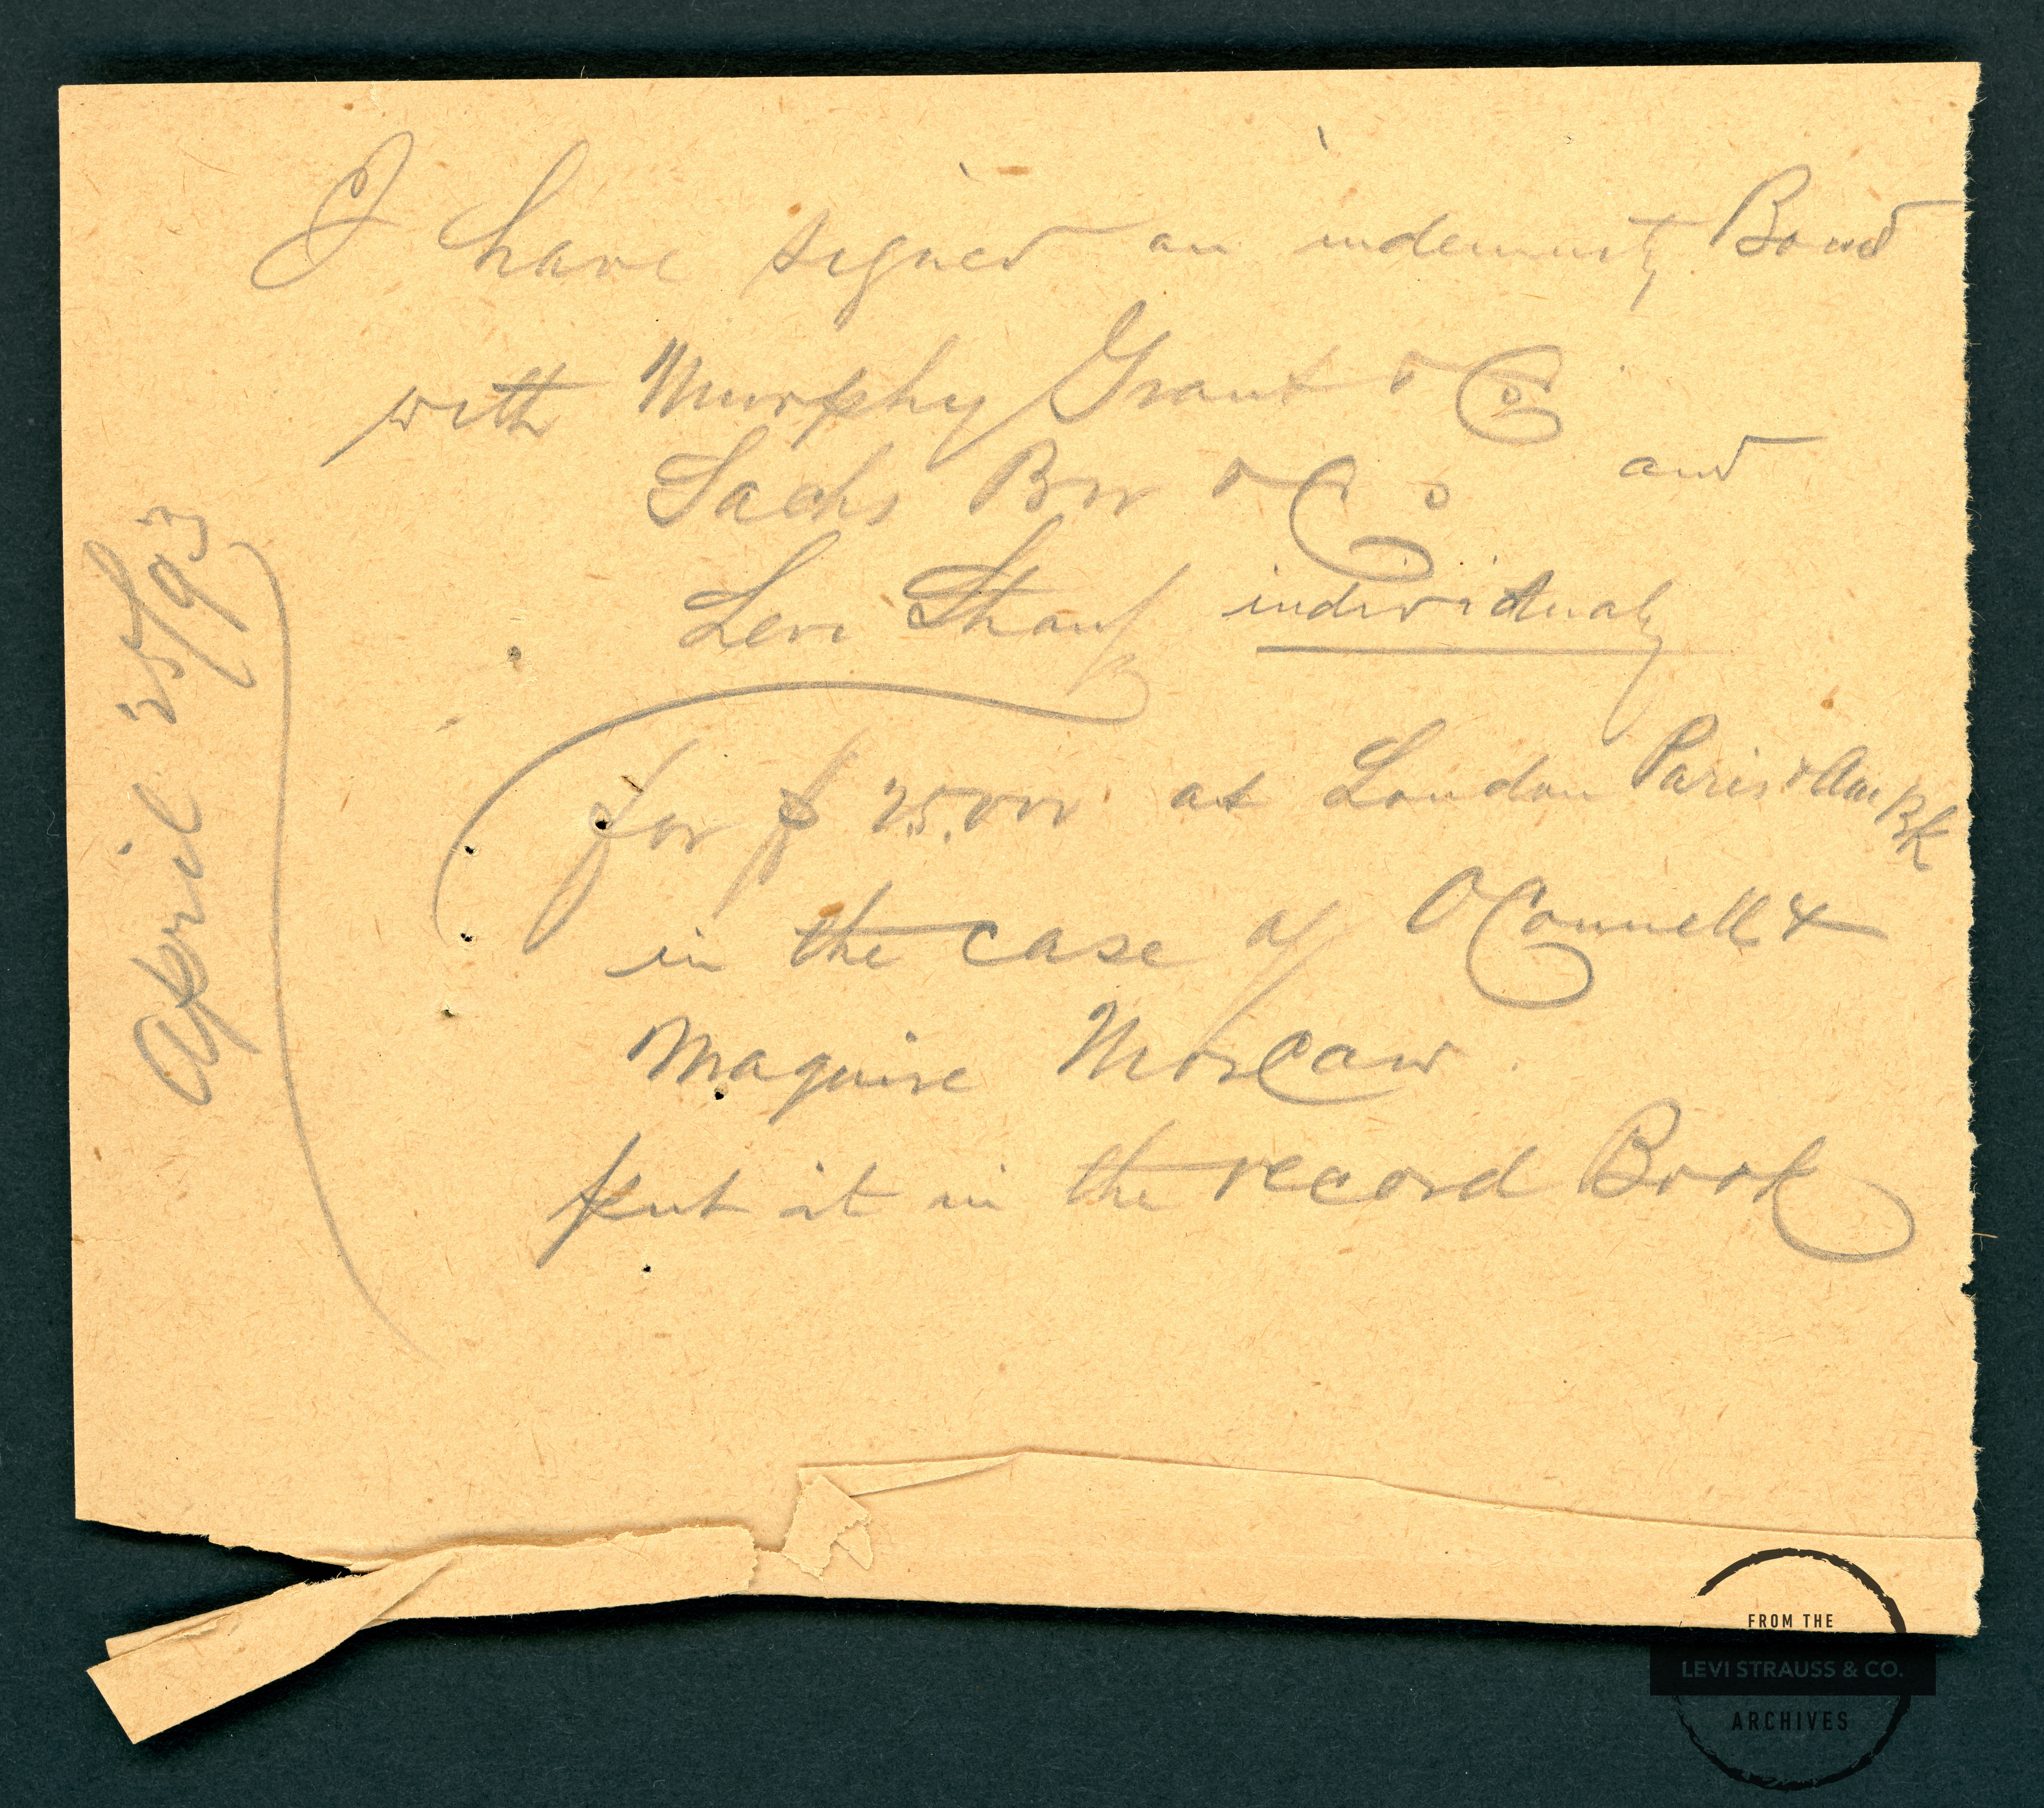 I have signed an indemnity Bond
with Murphy Grant & Co
Sachs Bro & Co and
Levi Strauss individualy
for $ 25.000 at London Paris & Am Bk
in the case of OConnell &
Maguire
put it in the record Book
April 25/93
FROM THE
LEVI STRAUSS & CO.
ARCHIVES